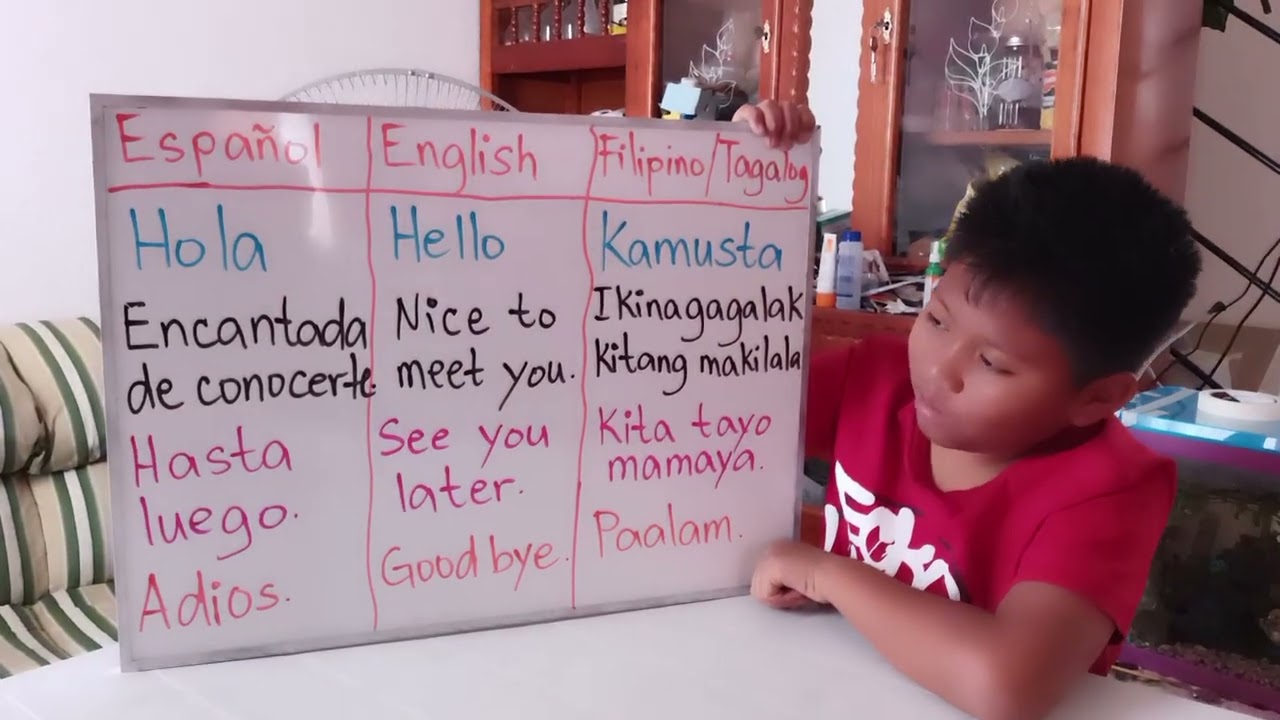 Español English Filipino/Tagalog
Hola Hello Kamusta
Encantada Nice to Ikinagagalak
de conocerte meet you. kitang makilala
Hasta See you Kita tayo
luego. later. mamaya.
Adios. Goodbye. Paalam.